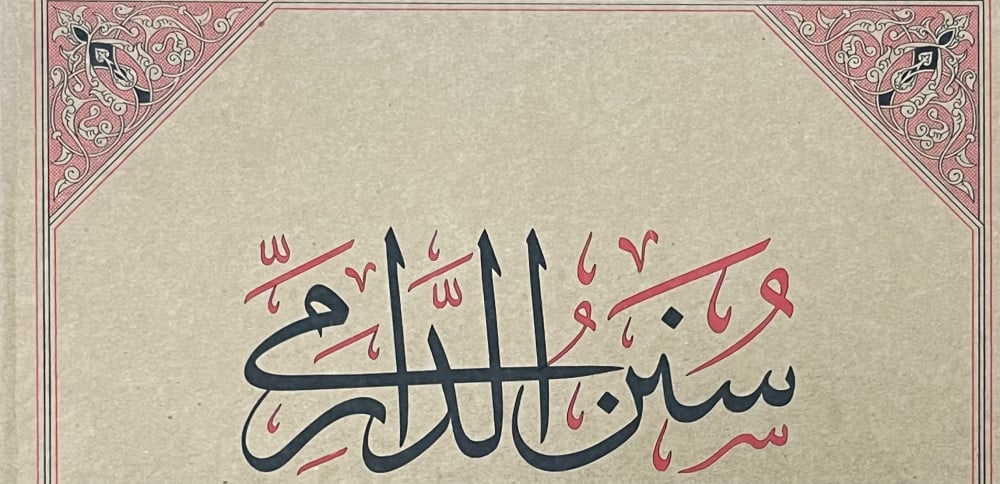 سُنَنُ الدَّارِمِيِّ